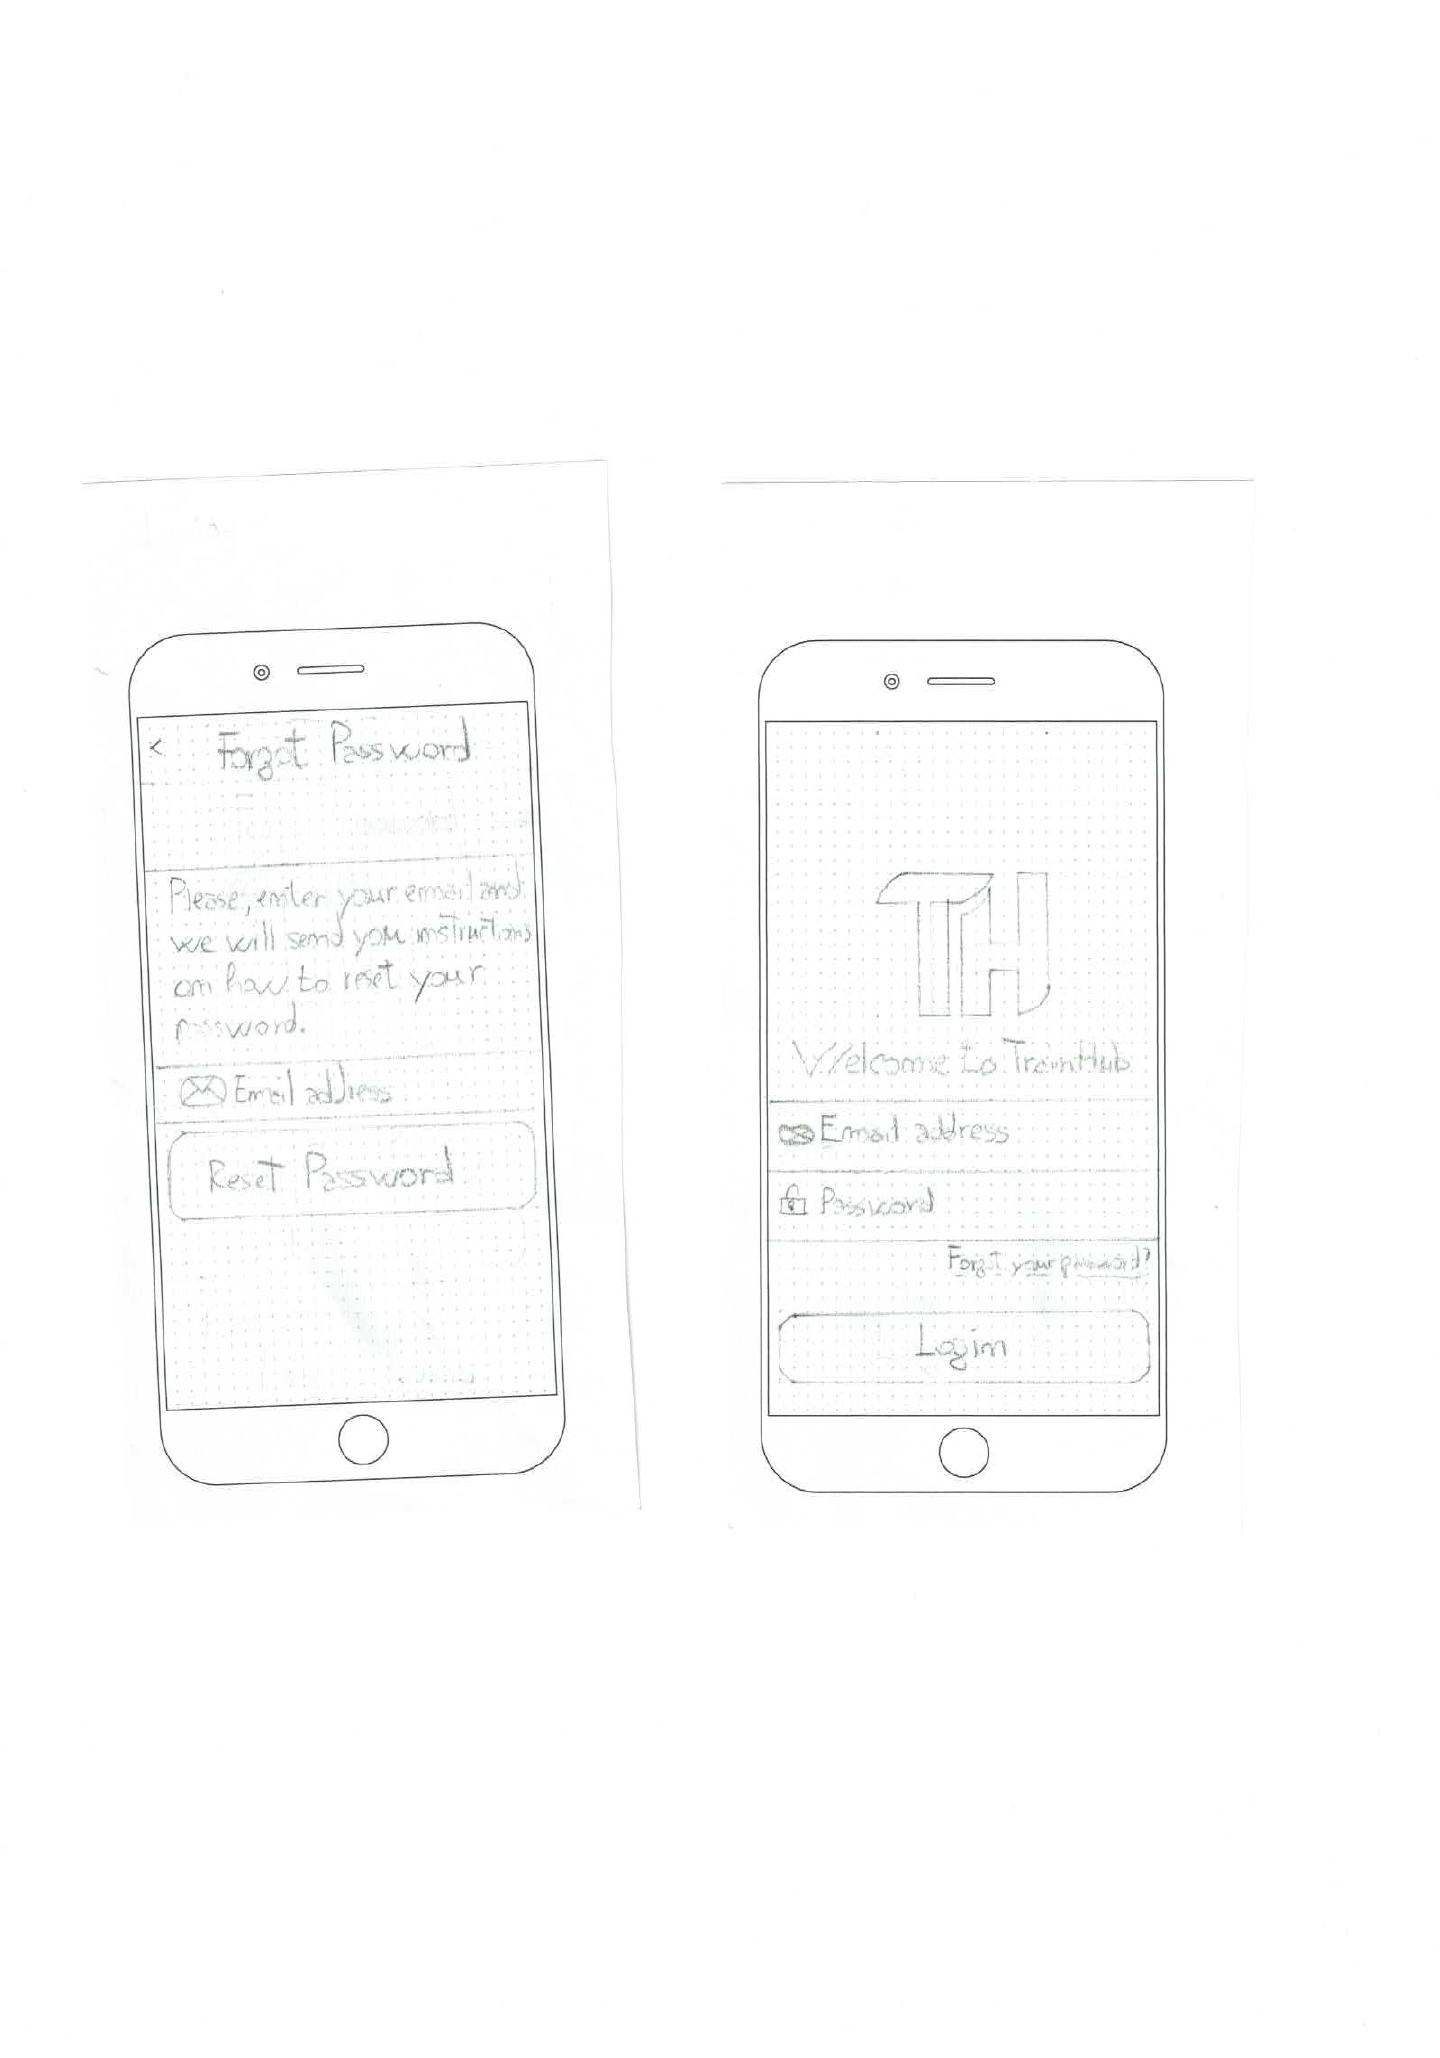 <
Forgot Password
Please, enter your email and
we will send you instructions
on how to reset your
password.
Email address
Reset Password
TH
Welcome to TrainHub
Email address
Password
Forgot your password?
Login